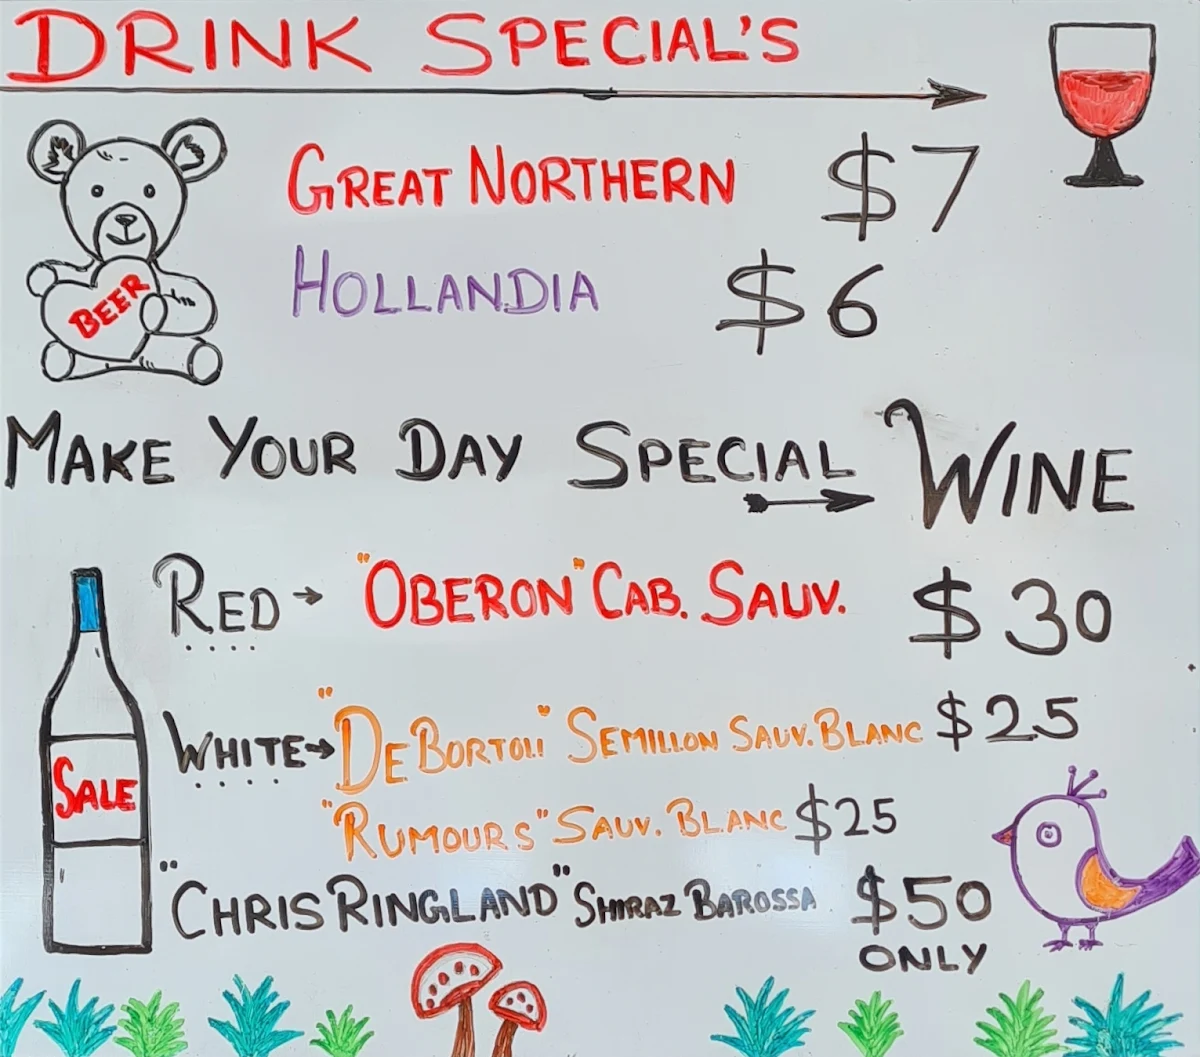 DRINK SPECIAL'S
GREAT NORTHERN $7
BEER
HOLLANDIA $6
MAKE YOUR DAY SPECIAL WINE
RED → "OBERON" CAB. SAUV. $30
WHITE → "DEBORTOLI" SEMILLON SAUV. BLANC $25
SALE
"RUMOURS" SAUV. BLANC $25
"CHRIS RINGLAND" SHIRAZ BAROSSA $50
ONLY